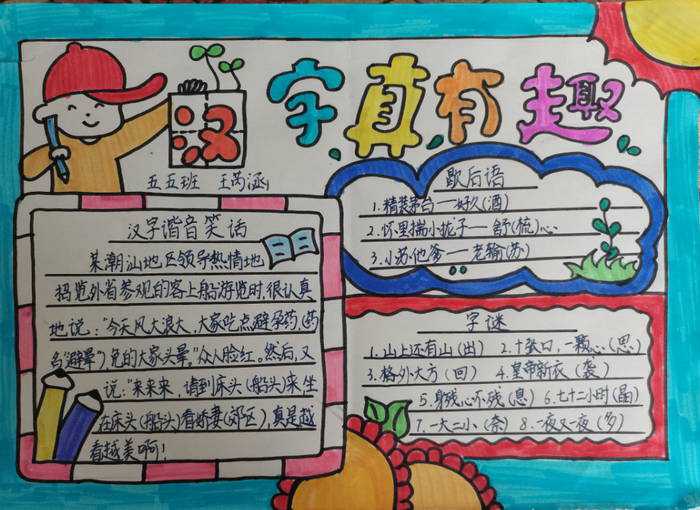 汉字真有趣
五五班 王芮涵
汉字谐音笑话
某潮汕地区领导热情地
招览外省参观的客上船游览时,很认真
地说:"今天风大浪大,大家吃点避孕药(药
台"避晕"),免的大家头晕。"众人脸红。然后,又
说:"来来来,请到床头(船头)来坐
在床头(船头)看娇妻(郊区),真是越
看越美啊!
歇后语
1.精装茅台——好久(酒)
2.怀里揣小拢子——舒(梳)心
3.小苏他爹——老输(苏)
字谜
1.山上还有山(出) 2.十张口,一颗心(思)
3.格外大方(回) 4.皇帝新衣(袭)
5.身残心不残(息) 6.七十二小时(晶)
7.一大二小(奈) 8.一夜又一夜(多)